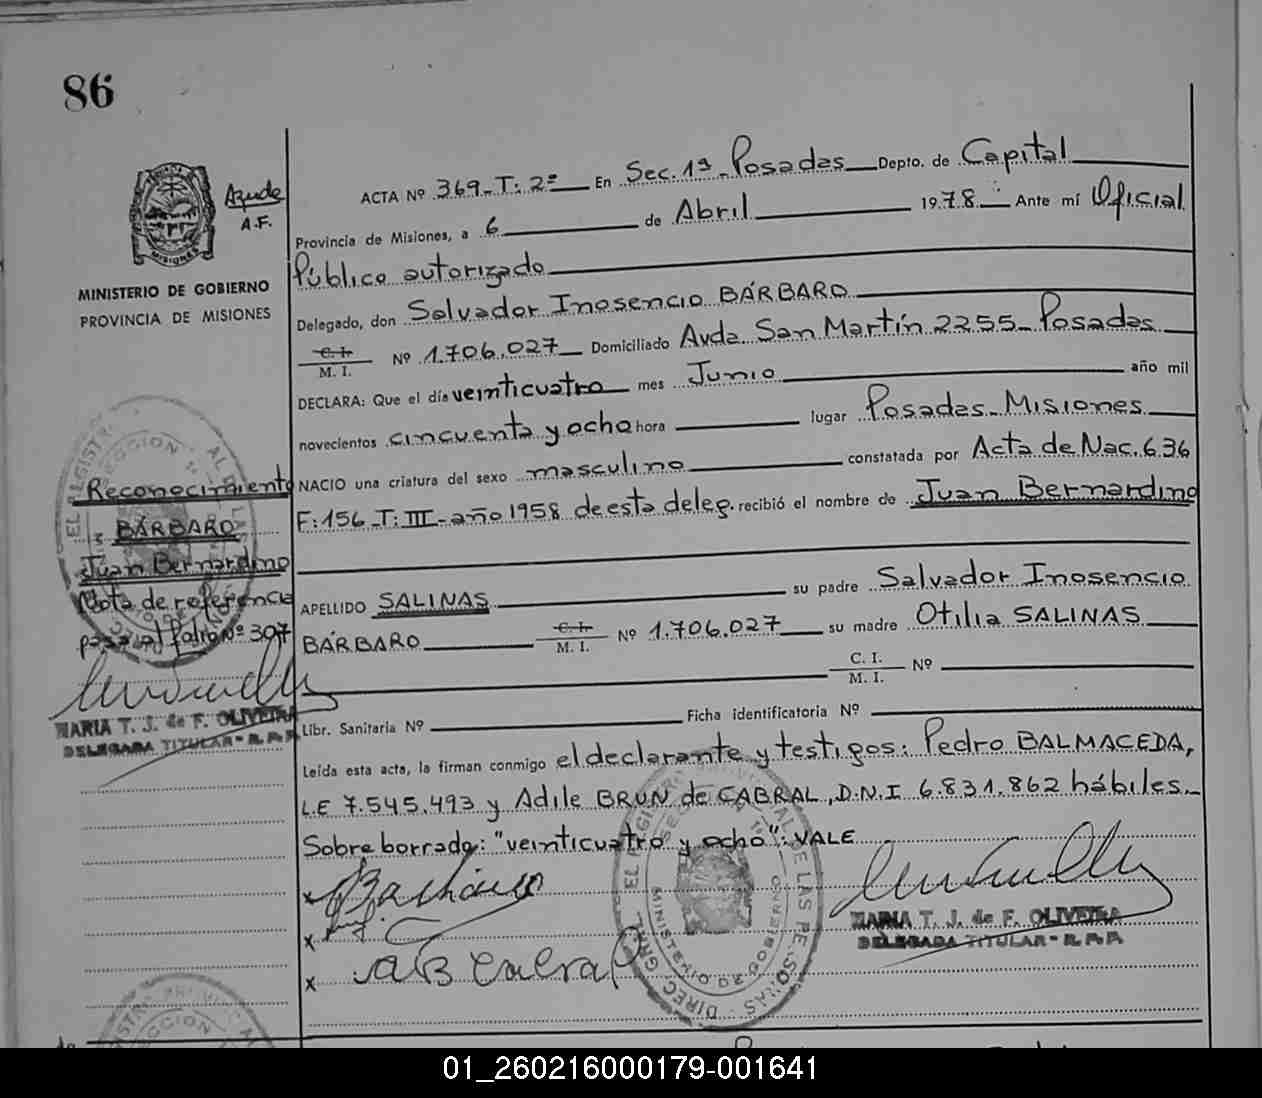 86
Ayude
A.F.
MISIONES
MINISTERIO DE GOBIERNO
PROVINCIA DE MISIONES
Reconocimiento
BÁRBARO
Juan Bernardino
Nota de referencia
pasa al folio Nº 307
MARIA T. J. de F. OLIVEIRA
DELEGADA TITULAR - R.P.P.
ACTA Nº 369-T: 2º En Sec. 1ª Posadas Depto. de Capital
Provincia de Misiones, a 6 de Abril 1978. Ante mí Oficial
Público autorizado
Delegado, don Salvador Inosencio BÁRBARO
C. I.
M. I. Nº 1.706.027 Domiciliado Avda San Martín 2255 - Posadas
DECLARA: Que el día veinticuatro mes Junio año mil
novecientos cincuenta y ocho hora lugar Posadas - Misiones
NACIO una criatura del sexo masculino constatada por Acta de Nac. 636
F: 156 - T: III - año 1958 de esta deleg. recibió el nombre de Juan Bernardino
APELLIDO SALINAS su padre Salvador Inosencio
BÁRBARO C. I.
M. I. Nº 1.706.027 su madre Otilia SALINAS
C. I.
M. I. Nº
Libr. Sanitaria Nº Ficha identificatoria Nº
Leída esta acta, la firman conmigo el declarante y testigos: Pedro BALMACEDA,
L.E 7.545.493 y Adile BRUN de CABRAL, D.N.I 6.831.862 hábiles.
Sobre borrado: "veinticuatro y ocho": VALE
x
x
x
MARIA T. J. de F. OLIVEIRA
DELEGADA TITULAR - R.P.P.
01_260216000179-001641